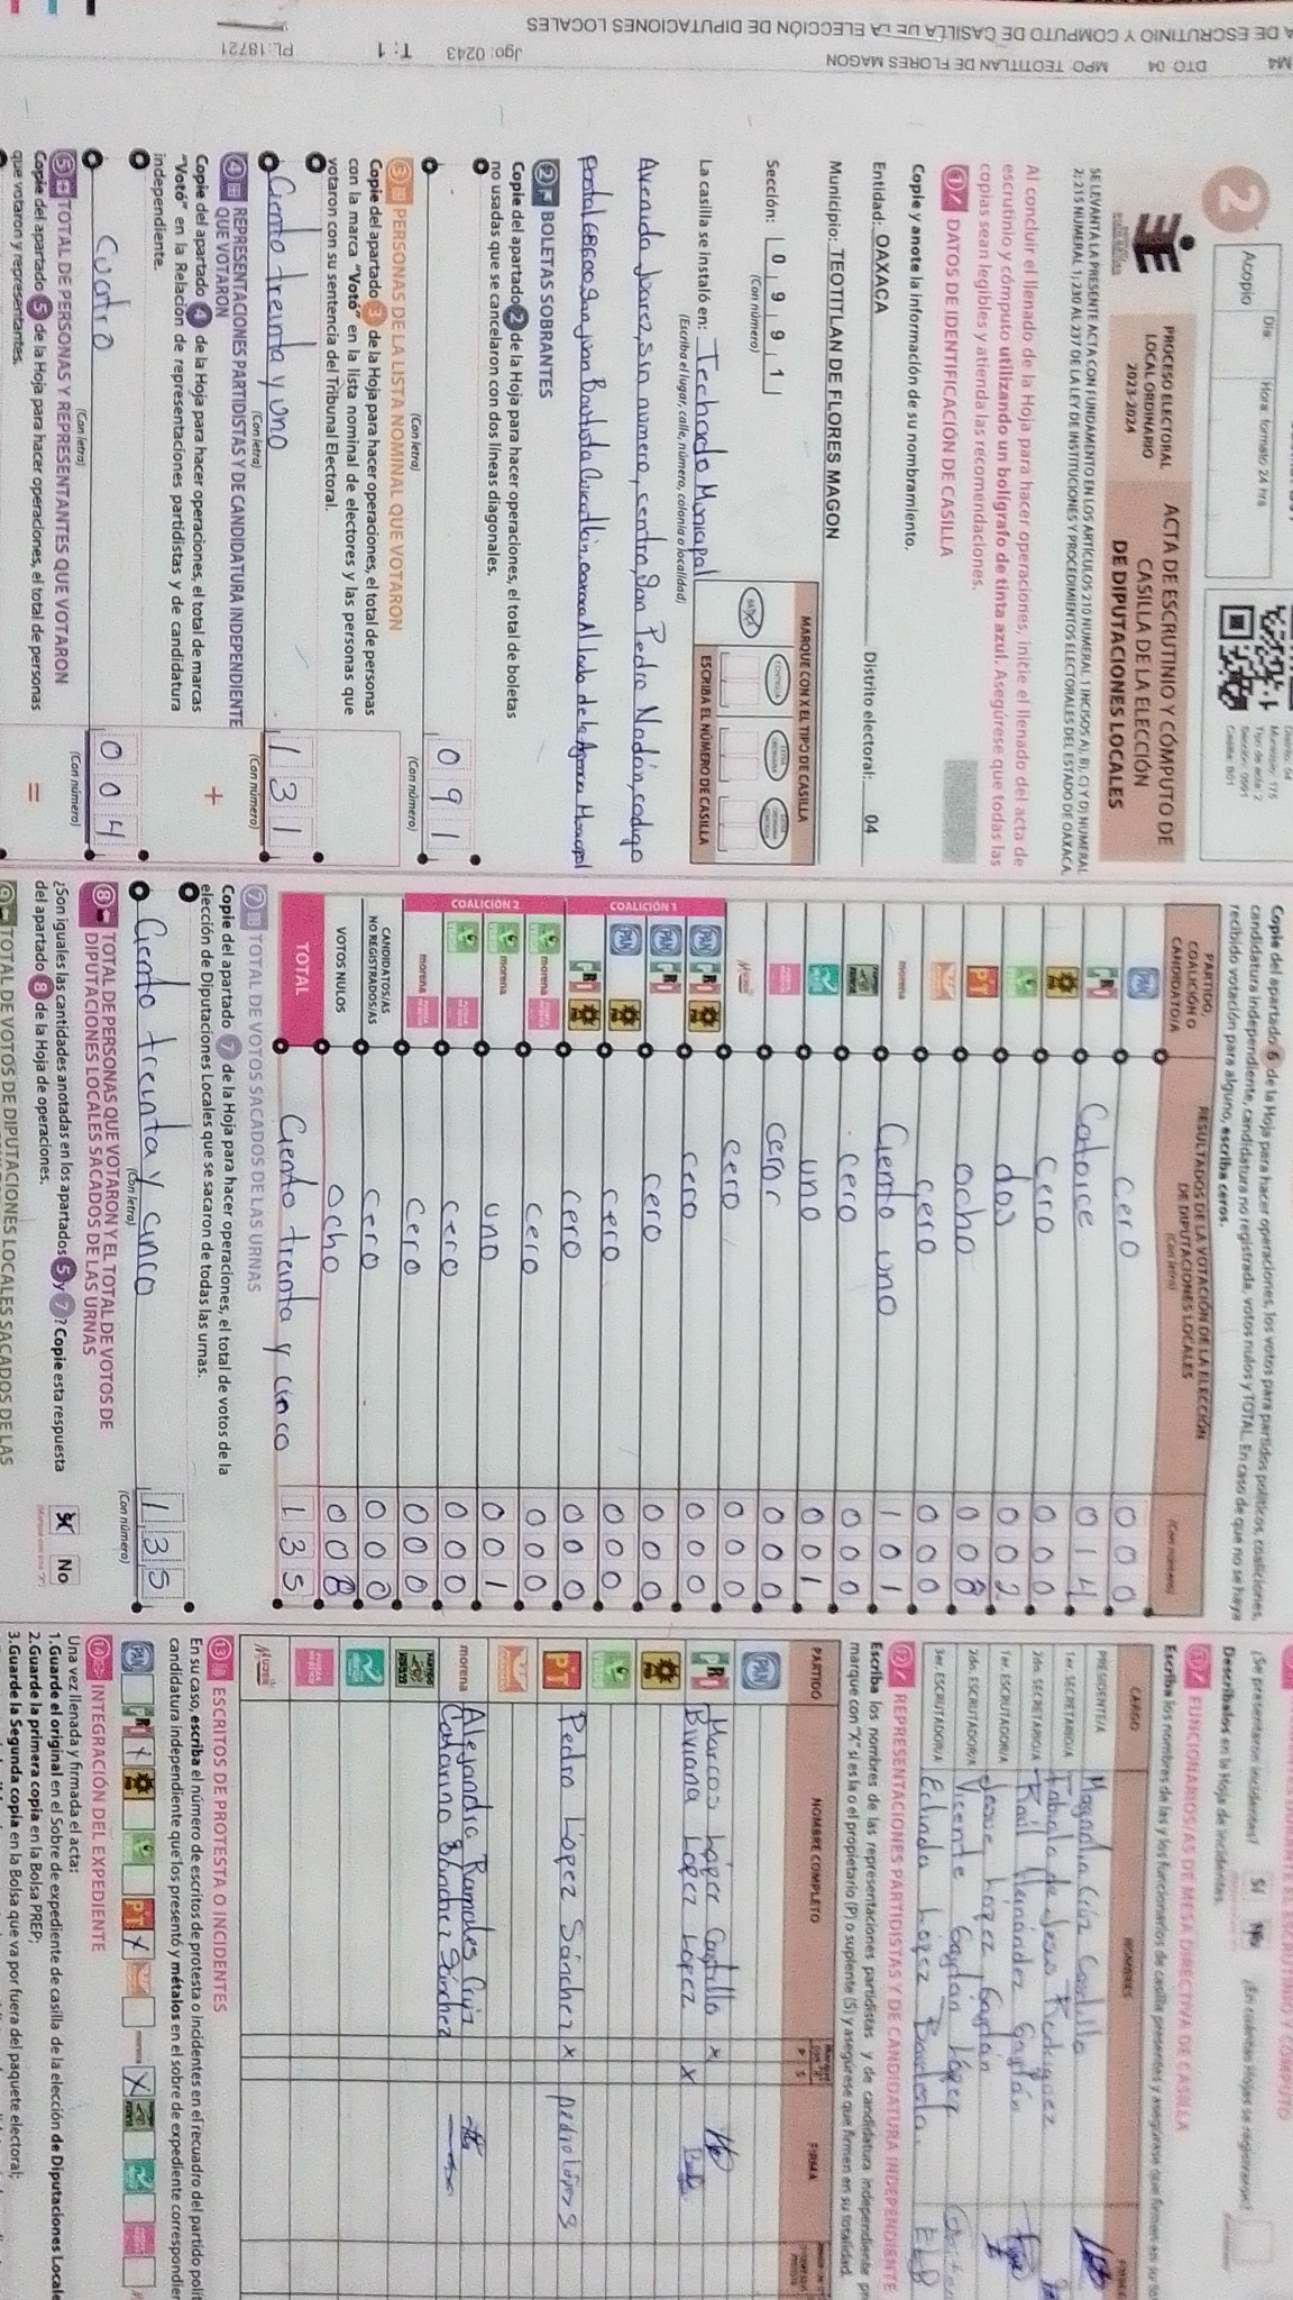 A DE ESCRUTINIO Y COMPUTO DE CASILLA DE LA ELECCIÓN DE DIPUTACIONES LOCALES
DTO 04 MPO TEOTITLAN DE FLORES MAGON Jgo: 0243 T: 1 PL: 18721
2
Acopio
Día:
Hora: formato 24 hrs
Tipo de acta: 2
Sección: 0991
Casilla: B01
PROCESO ELECTORAL
LOCAL ORDINARIO
2023-2024
ACTA DE ESCRUTINIO Y CÓMPUTO DE
CASILLA DE LA ELECCIÓN
DE DIPUTACIONES LOCALES
SE LEVANTA LA PRESENTE ACTA CON FUNDAMENTO EN LOS ARTÍCULOS 210 NUMERAL 1 INCISOS A), B), C) Y D) NUMERAL
2; 215 NUMERAL 1; 230 AL 237 DE LA LEY DE INSTITUCIONES Y PROCEDIMIENTOS ELECTORALES DEL ESTADO DE OAXACA.
Al concluir el llenado de la Hoja para hacer operaciones, inicie el llenado del acta de
escrutinio y cómputo utilizando un bolígrafo de tinta azul. Asegúrese que todas las
copias sean legibles y atienda las recomendaciones.
1 DATOS DE IDENTIFICACIÓN DE CASILLA
Copie y anote la información de su nombramiento.
Entidad: OAXACA Distrito electoral: 04
Municipio: TEOTITLAN DE FLORES MAGON
Sección: 0 9 9 1
(Con número)
MARQUE CON X EL TIPO DE CASILLA
ESCRIBA EL NÚMERO DE CASILLA
La casilla se instaló en: Techado Municipal
(Escriba el lugar, calle, número, colonia o localidad)
Avenida Juarez, sin numero, centro, San Pedro Nodón, codigo
postal 68600 San Juan Bautista Cuicatlán, Oaxaca Al lado de la Agencia Municipal
2 BOLETAS SOBRANTES
Copie del apartado 2 de la Hoja para hacer operaciones, el total de boletas
no usadas que se cancelaron con dos líneas diagonales.
0 9 1
(Con letra) (Con número)
3 PERSONAS DE LA LISTA NOMINAL QUE VOTARON
Copie del apartado 3 de la Hoja para hacer operaciones, el total de personas
con la marca "Votó" en la lista nominal de electores y las personas que
votaron con su sentencia del Tribunal Electoral.
Ciento treinta y uno 1 3 1
(Con letra) (Con número)
4 REPRESENTACIONES PARTIDISTAS Y DE CANDIDATURA INDEPENDIENTE
QUE VOTARON
Copie del apartado 4 de la Hoja para hacer operaciones, el total de marcas
"Votó" en la Relación de representaciones partidistas y de candidatura
independiente.
+
Cuatro 0 0 4
(Con letra) (Con número)
5 TOTAL DE PERSONAS Y REPRESENTANTES QUE VOTARON
Copie del apartado 5 de la Hoja para hacer operaciones, el total de personas
que votaron y representantes.
=
Copie del apartado 6 de la Hoja para hacer operaciones, los votos para partidos políticos, coaliciones,
candidatura independiente, candidatura no registrada, votos nulos y TOTAL. En caso de que no se haya
recibido votación para alguno, escriba ceros.
PARTIDO,
COALICIÓN O
CANDIDATO/A
RESULTADOS DE LA VOTACIÓN DE LA ELECCIÓN
DE DIPUTACIONES LOCALES
(Con letra)
(Con número)
PAN cero 0 0 0
PRI Catorce 0 1 4
PRD cero 0 0 0
VERDE dos 0 0 2
PT ocho 0 0 8
cero 0 0 0
morena Ciento uno 1 0 1
cero 0 0 0
uno 0 0 1
cero 0 0 0
Mujer cero 0 0 0
COALICIÓN 1
PAN PRI PRD cero 0 0 0
PAN PRI cero 0 0 0
PAN PRD cero 0 0 0
PRI PRD cero 0 0 0
COALICIÓN 2
VERDE morena cero 0 0 0
VERDE morena uno 0 0 1
VERDE cero 0 0 0
morena cero 0 0 0
CANDIDATOS/AS
NO REGISTRADOS/AS cero 0 0 0
VOTOS NULOS ocho 0 0 8
TOTAL Ciento treinta y cinco 1 3 5
7 TOTAL DE VOTOS SACADOS DE LAS URNAS
Copie del apartado 7 de la Hoja para hacer operaciones, el total de votos de la
elección de Diputaciones Locales que se sacaron de todas las urnas.
Ciento treinta y cinco 1 3 5
(Con letra) (Con número)
8 TOTAL DE PERSONAS QUE VOTARON Y EL TOTAL DE VOTOS DE
DIPUTACIONES LOCALES SACADOS DE LAS URNAS
¿Son iguales las cantidades anotadas en los apartados 5 y 7? Copie esta respuesta
del apartado 8 de la Hoja de operaciones. No
9 TOTAL DE VOTOS DE DIPUTACIONES LOCALES SACADOS DE LAS
¿Se presentaron incidentes? Sí No ¿En cuántas Hojas se registraron?
Descríbalos en la Hoja de incidentes.
11 FUNCIONARIOS/AS DE MESA DIRECTIVA DE CASILLA
Escriba los nombres de las y los funcionarios de casilla presentes y asegúrese que firmen en su
CARGO NOMBRES
PRESIDENTE/A Magdalia Cruz Castillo
1er. SECRETARIO/A Fabiola de Jesus Rodriguez
2do. SECRETARIO/A Raúl Hernández Gaytán
1er. ESCRUTADOR/A Josue Lopez Gaytán
2do. ESCRUTADOR/A Vicente Gaytan López
3er. ESCRUTADOR/A Eclada López Bautista
12 REPRESENTACIONES PARTIDISTAS Y DE CANDIDATURA INDEPENDIENTE
Escriba los nombres de las representaciones partidistas y de candidatura independiente
marque con "X" si es la o el propietario (P) o suplente (S) y asegúrese que firmen en su totalidad.
PARTIDO NOMBRE COMPLETO P S FIRMA
PAN
PRI Marcos López Castillo x
Biviana Lopez Lopez x
PRD
VERDE
PT Pedro Lopez Sánchez x pedro López S
morena Alejandra Ramales Cruz
Catarino Sánchez Sánchez
Mujer
13 ESCRITOS DE PROTESTA O INCIDENTES
En su caso, escriba el número de escritos de protesta o incidentes en el recuadro del partido polít
candidatura independiente que los presentó y métalos en el sobre de expediente correspondien
PAN PRI x PRD PT x morena x
14 INTEGRACIÓN DEL EXPEDIENTE
Una vez llenada y firmada el acta:
1.Guarde el original en el Sobre de expediente de casilla de la elección de Diputaciones Locale
2.Guarde la primera copia en la Bolsa PREP;
3.Guarde la Segunda copia en la Bolsa que va por fuera del paquete electoral;